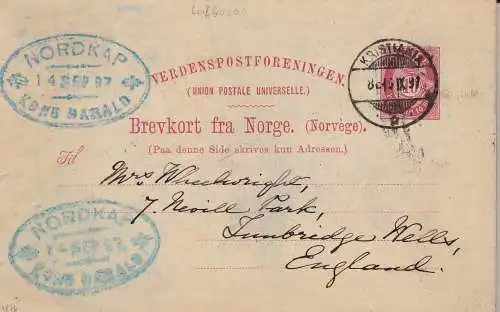 NORDKAP
14 SEP 97
KONG HARALD
VERDENSPOSTFORENINGEN.
(UNION POSTALE UNIVERSELLE.)
KRISTIANIA
IX.97
2
Brevkort fra Norge. (Norvège).
(Paa denne Side skrives kun Adressen.)
Til
Mrs Wheelwright,
7 Nevill Park,
Tunbridge Wells,
England.
NORDKAP
14 SEP 97
KONG HARALD